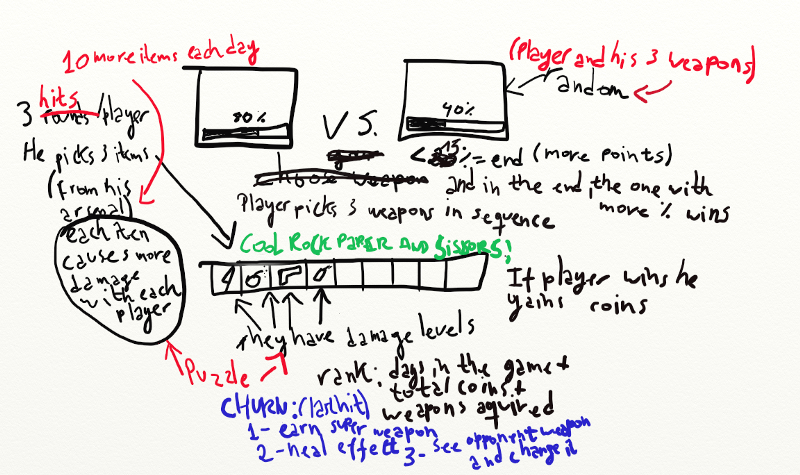 10 more items each day
(Player and his 3 weapons)
andom
3 hits /player
80%
40%
VS.
He picks 3 items
(from his
arsenal)
< 15% = end (more points)
and in the end, the one with
more % wins
Choose weapon
Player picks 3 weapons in sequence
each item
causes more
damage
with each
player
COOL ROCK PAPER AND SISKORS!
If player wins he
gains coins
They have damage levels
Puzzle
rank: days in the game +
total coins +
weapons aquired
CHURN: (last hit)
1- earn super weapon
2- heal effect
3- see opponent weapon
and change it